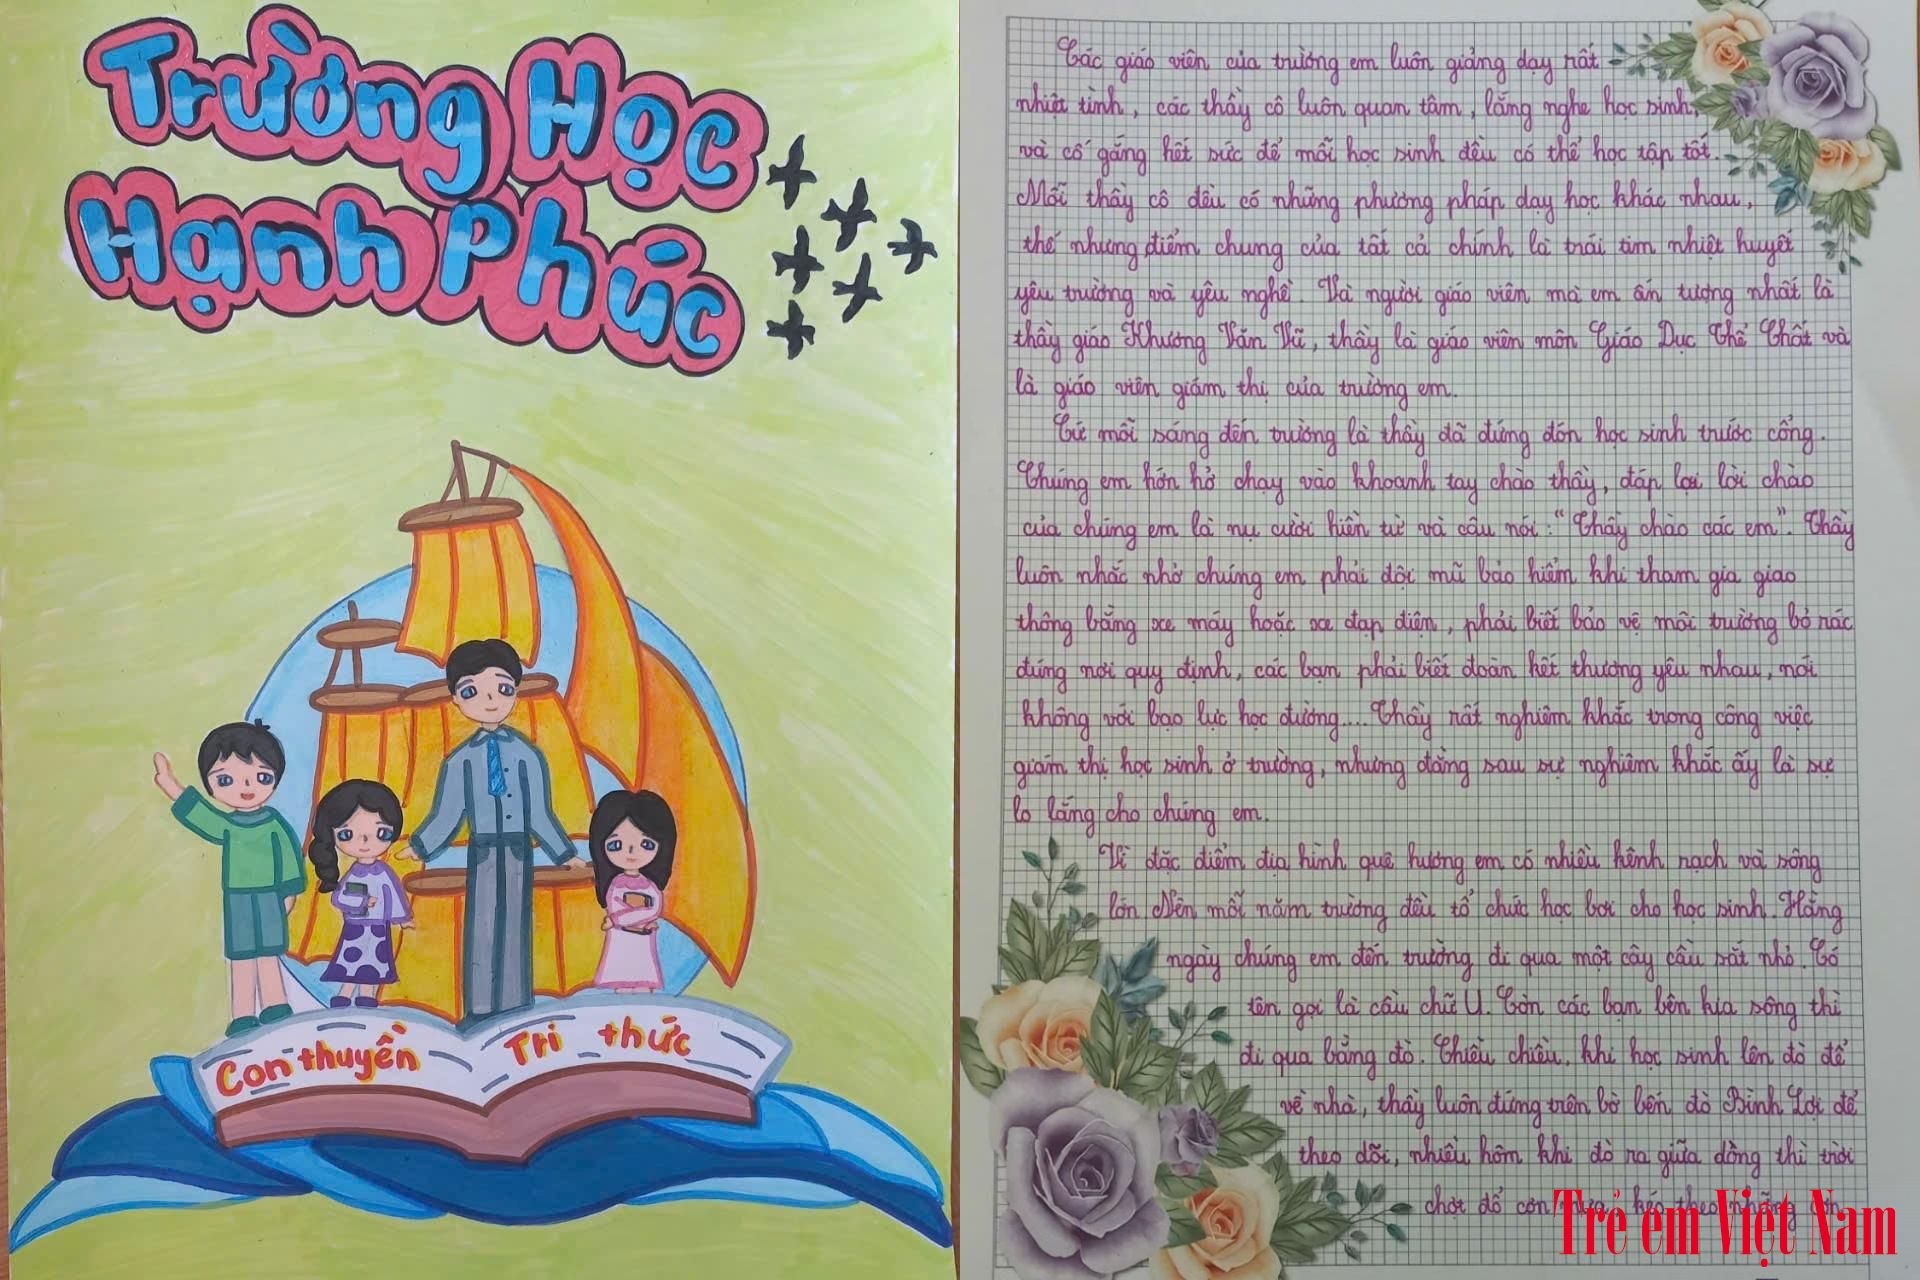 Trường Học
Hạnh Phúc
Con thuyền Tri thức
Các giáo viên của trường em luôn giảng dạy rất
nhiệt tình, các thầy cô luôn quan tâm, lắng nghe học sinh,
và cố gắng hết sức để mỗi học sinh đều có thể học tập tốt.
Mỗi thầy cô đều có những phương pháp dạy học khác nhau,
thế nhưng điểm chung của tất cả chính là trái tim nhiệt huyết
yêu trường và yêu nghề. Và người giáo viên mà em ấn tượng nhất là
thầy giáo Khương Văn Vũ, thầy là giáo viên môn Giáo Dục Thể Chất và
là giáo viên giám thị của trường em.
Cứ mỗi sáng đến trường là thầy đã đứng đón học sinh trước cổng.
Chúng em hớn hở chạy vào khoanh tay chào thầy, đáp lại lời chào
của chúng em là nụ cười hiền từ và câu nói: "Thầy chào các em". Thầy
luôn nhắc nhở chúng em phải đội mũ bảo hiểm khi tham gia giao
thông bằng xe máy hoặc xe đạp điện, phải biết bảo vệ môi trường bỏ rác
đúng nơi quy định, các bạn phải biết đoàn kết thương yêu nhau, nói
không với bạo lực học đường.... Thầy rất nghiêm khắc trong công việc
giám thị học sinh ở trường, nhưng đằng sau sự nghiêm khắc ấy là sự
lo lắng cho chúng em.
Vì đặc điểm địa hình quê hương em có nhiều kênh rạch và sông
lớn Nên mỗi năm trường đều tổ chức học bơi cho học sinh. Hằng
ngày chúng em đến trường đi qua một cây cầu sắt nhỏ. Có
tên gọi là cầu chữ U. Còn các bạn bên kia sông thì
đi qua bằng đò. Chiều chiều, khi học sinh lên đò để
về nhà, thầy luôn đứng trên bờ bến đò Bình Lợi để
theo dõi, nhiều hôm khi đò ra giữa dòng thì trời
chợt đổ cơn mưa, kéo theo những cơn
Trẻ em Việt Nam